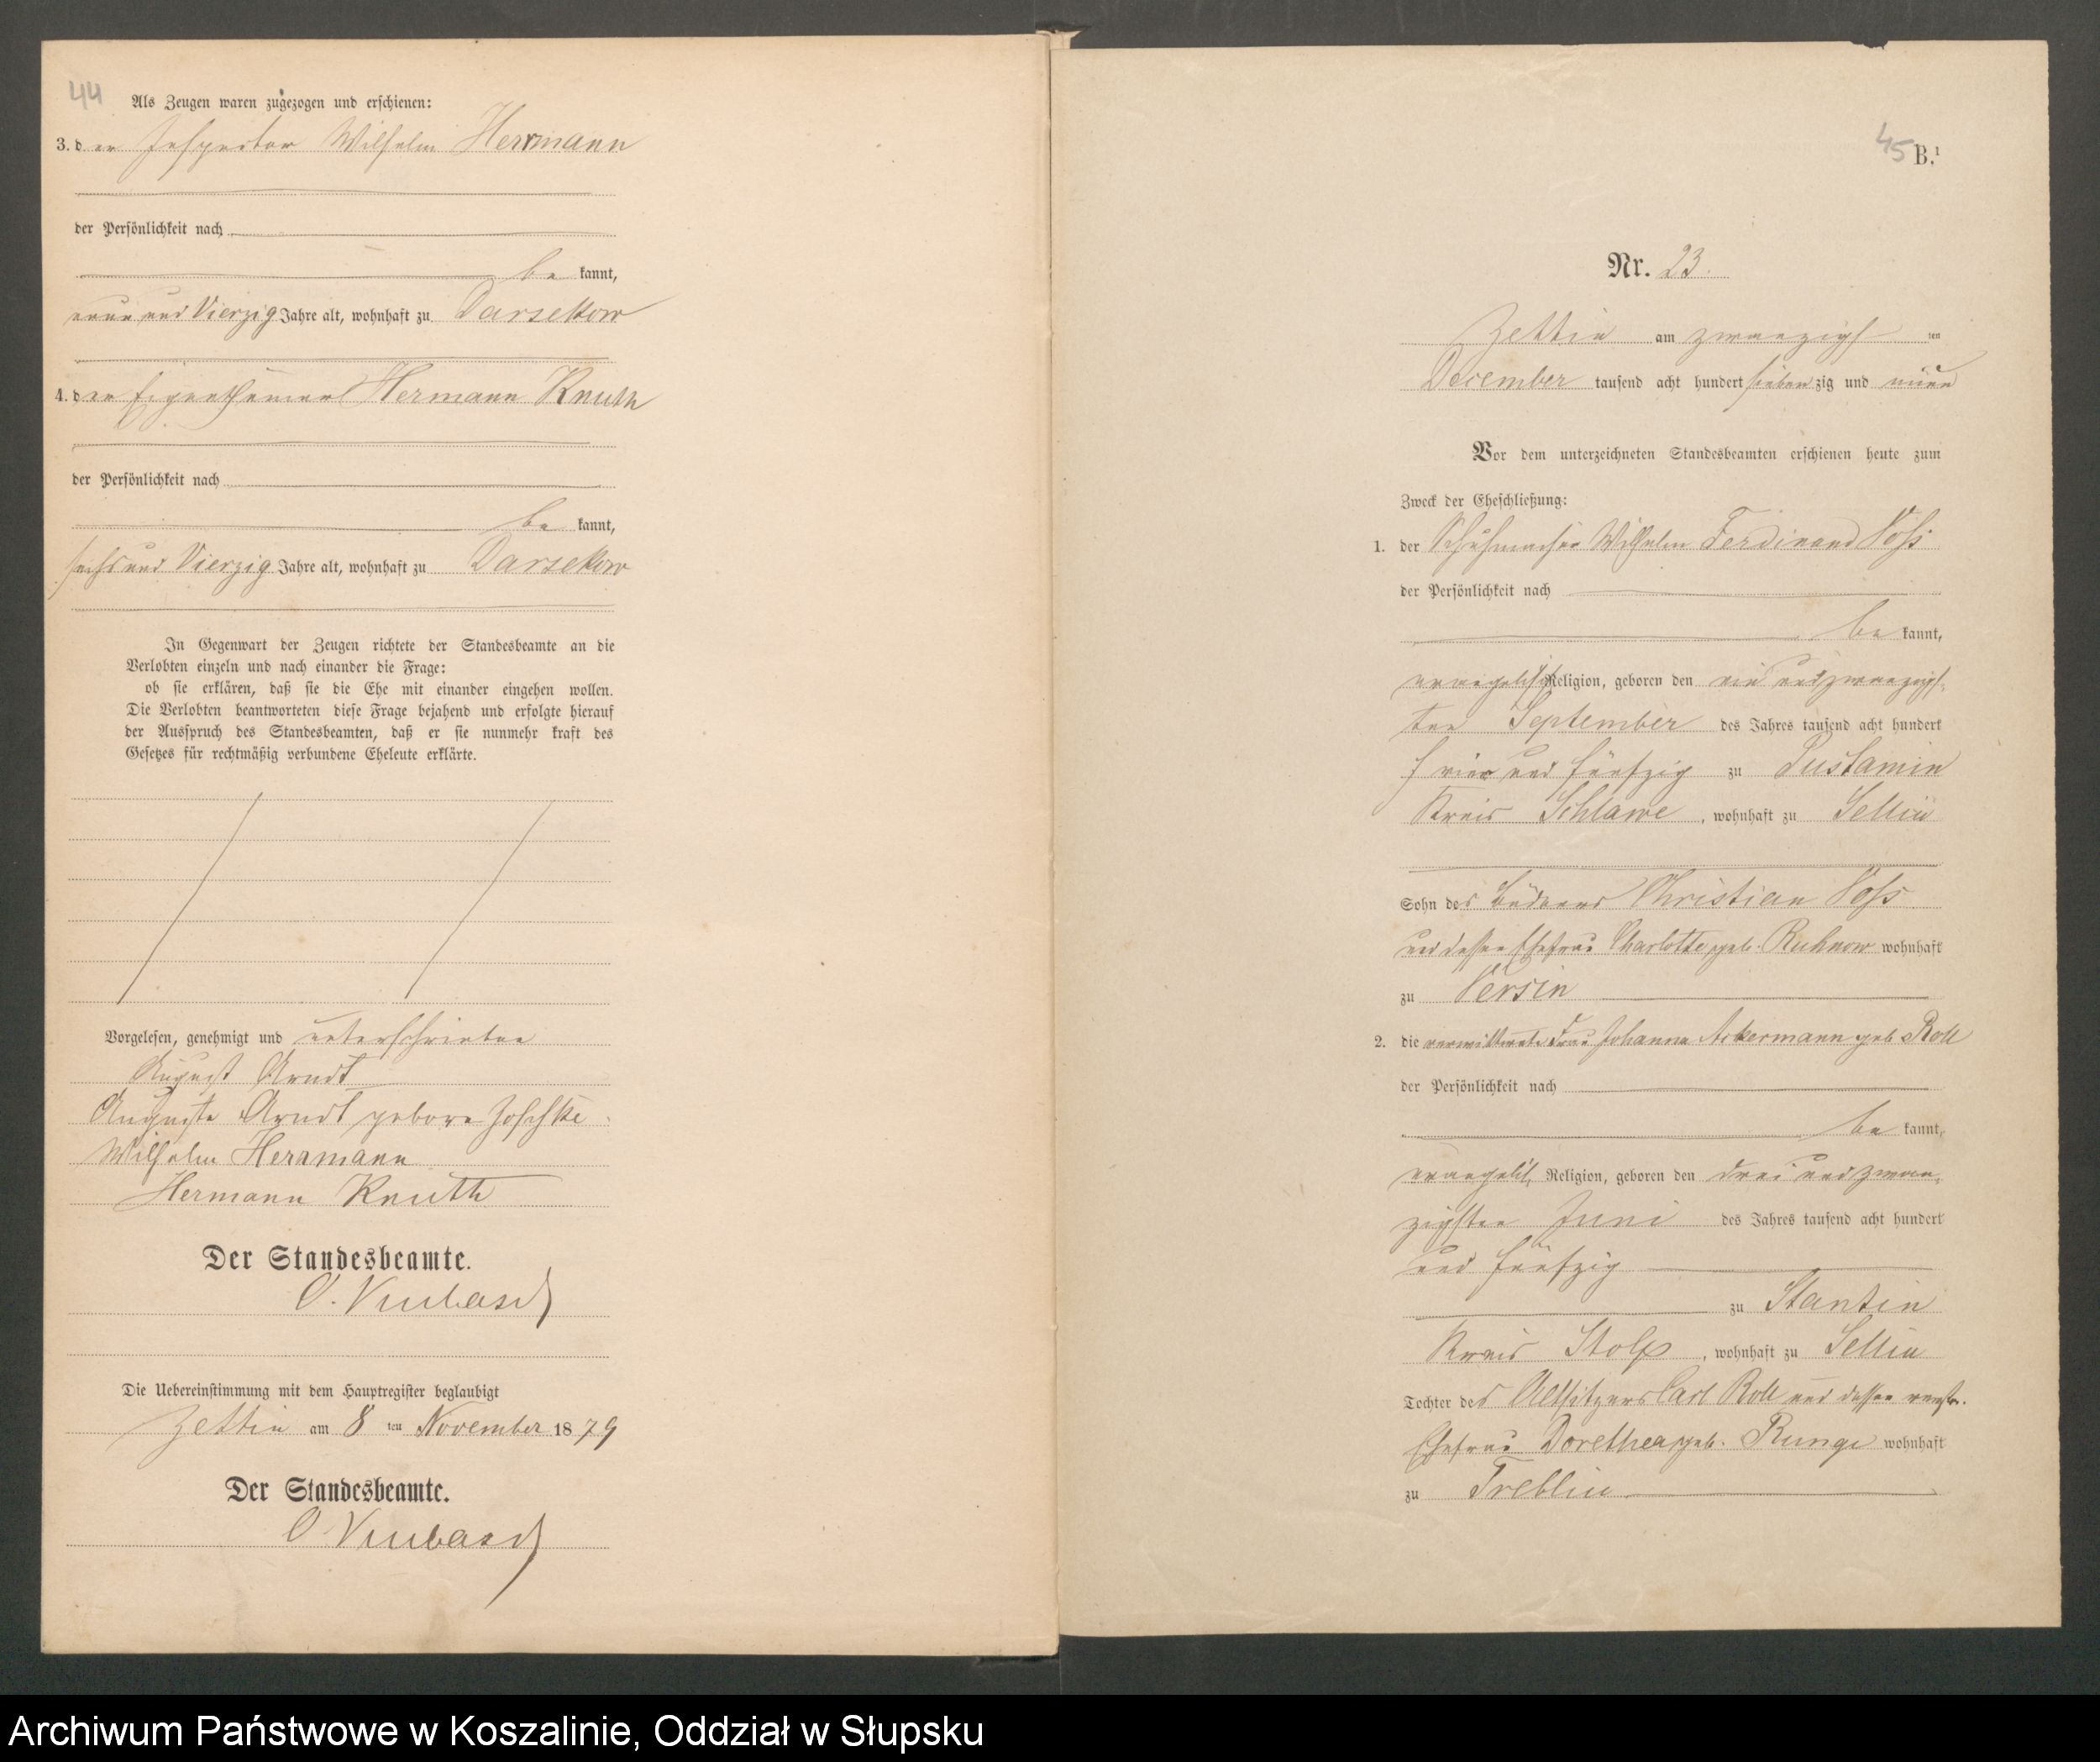 44
Als Zeugen waren zugezogen und erschienen:
3. der Inspector Wilhelm Herrmann
der Persönlichkeit nach
be kannt,
neun und Vierzig Jahre alt, wohnhaft zu Darsekow
4. der Eigenthümer Hermann Knuth
der Persönlichkeit nach
be kannt,
sechs und Vierzig Jahre alt, wohnhaft zu Darsekow
In Gegenwart der Zeugen richtete der Standesbeamte an die
Verlobten einzeln und nach einander die Frage:
ob sie erklären, daß sie die Ehe mit einander eingehen wollen.
Die Verlobten beantworteten diese Frage bejahend und erfolgte hierauf
der Ausspruch des Standesbeamten, daß er sie nunmehr kraft des
Gesetzes für rechtmäßig verbundene Eheleute erklärte.
Vorgelesen, genehmigt und unterschrieben
August Arndt
Auguste Arndt gebore
Wilhelm Herrmann
Hermann Knuth
Der Standesbeamte.
O.
Die Uebereinstimmung mit dem Hauptregister beglaubigt
Zettin am 8 ten November 1879
Der Standesbeamte.
O.
45
B.¹
Nr. 23.
Zettin am zwanzigs ten
December tausend acht hundert siebenzig und neun
Vor dem unterzeichneten Standesbeamten erschienen heute zum
Zweck der Eheschließung:
1. der Schuhmacher Wilhelm Ferdinand Voß
der Persönlichkeit nach
be kannt,
evangelisch Religion, geboren den ein und zwanzigs-
ten September des Jahres tausend acht hundert
vier und fünfzig zu Pustamin
Kreis Schlawe, wohnhaft zu Sellin
Sohn des Büdners Christian Voß
und dessen Ehefrau Charlotte geb. Ruhnow wohnhaft
zu Versin
2. die verwittwete Frau Johanna Ackermann geb Roll
der Persönlichkeit nach
be kannt,
evangelisch Religion, geboren den drei und zwan-
zigsten Juni des Jahres tausend acht hundert
und fünfzig
zu Stantin
Kreis Stolp, wohnhaft zu Sellin
Tochter des Altsitzers Carl Roll und dessen verstr.
Ehefrau Dorethea geb. Runge wohnhaft
zu Treblin
Archiwum Państwowe w Koszalinie, Oddział w Słupsku